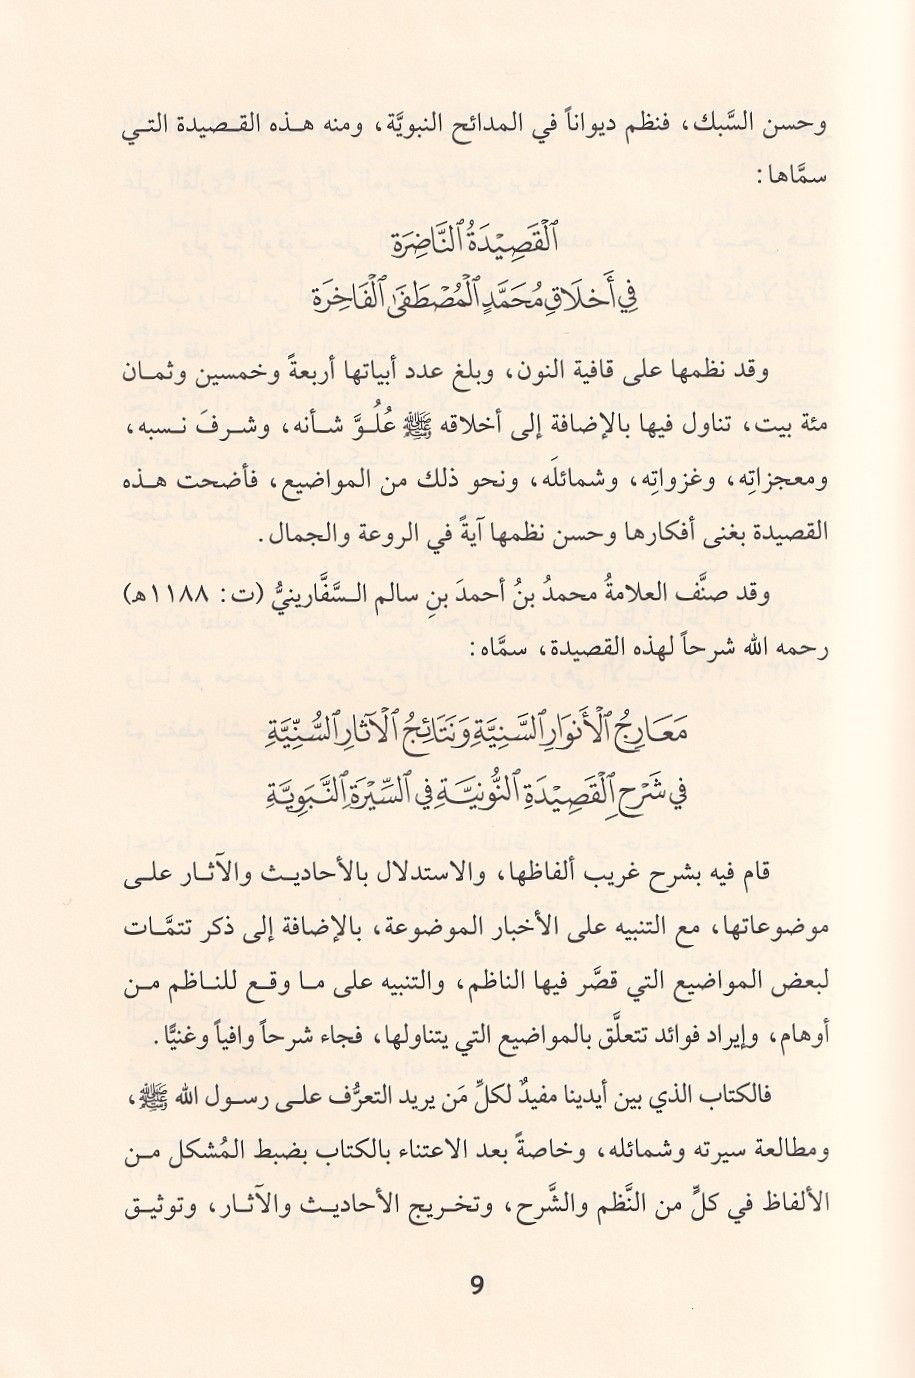 وحسن السَّبك، فنظم ديواناً في المدائح النبويَّة، ومنه هـذه القـصيدة التـي
سمَّاها:
اَلْقَصِيْدَةُ النَّاضِرَة
فِي أَخلَاقِ مُحَمَّدٍ الْمُصْطَفَى الْفَاخِرَة
وقد نظمها على قافية النون، وبلغ عدد أبياتها أربعةً وخمسين وثمـان
مئة بيت، تناول فيها بالإضافة إلى أخلاقه ﷺ عُلُـوَّ شـأنه، وشـرفَ نـسبه،
ومعجزاتِه، وغزواتِه، وشمائلَه، ونحو ذلك من المواضيع، فأضحت هـذه
القصيدة بغنى أفكارها وحسن نظمها آيةً في الروعة والجمال.
وقد صنَّف العلامةُ محمدُ بنُ أحمدَ بنِ سالم الـسَّفَّارينيُّ (ت: ١١٨٨هـ)
رحمه الله شرحاً لهذه القصيدة، سمَّاه:
مَعَارِجُ الْأَنوَارِ السَّنِيَّةِ وَنَتَائِجُ الْآثارِ السُّنِّيَّةِ
فِي شَرْحِ الْقَصِيْدَةِ النُّونيَّـةِ فِي السِّيْرَةِ النَّبَوِيَّةِ
قام فيه بشرح غريب ألفاظها، والاستدلال بالأحاديـث والآثـار علـى
موضوعاتها، مع التنبيه على الأخبار الموضوعة، بالإضافة إلى ذكر تتمَّـات
لبعض المواضيع التي قصَّر فيها الناظم، والتنبيه على مـا وقـع للنـاظم مـن
أوهام، وإيراد فوائد تتعلَّق بالمواضيع التي يتناولها، فجاء شرحاً وافياً وغنيًّا.
فالكتاب الذي بين أيدينا مفيدٌ لكلِّ مَن يريد التعرُّف علـى رسـول الله ﷺ،
ومطالعة سيرته وشمائله، وخاصةً بعد الاعتناء بالكتاب بضبط المُشكل مـن
الألفاظ في كلٍّ من النَّظم والشَّرح، وتخـريج الأحاديـث والآثـار، وتوثيـق
9